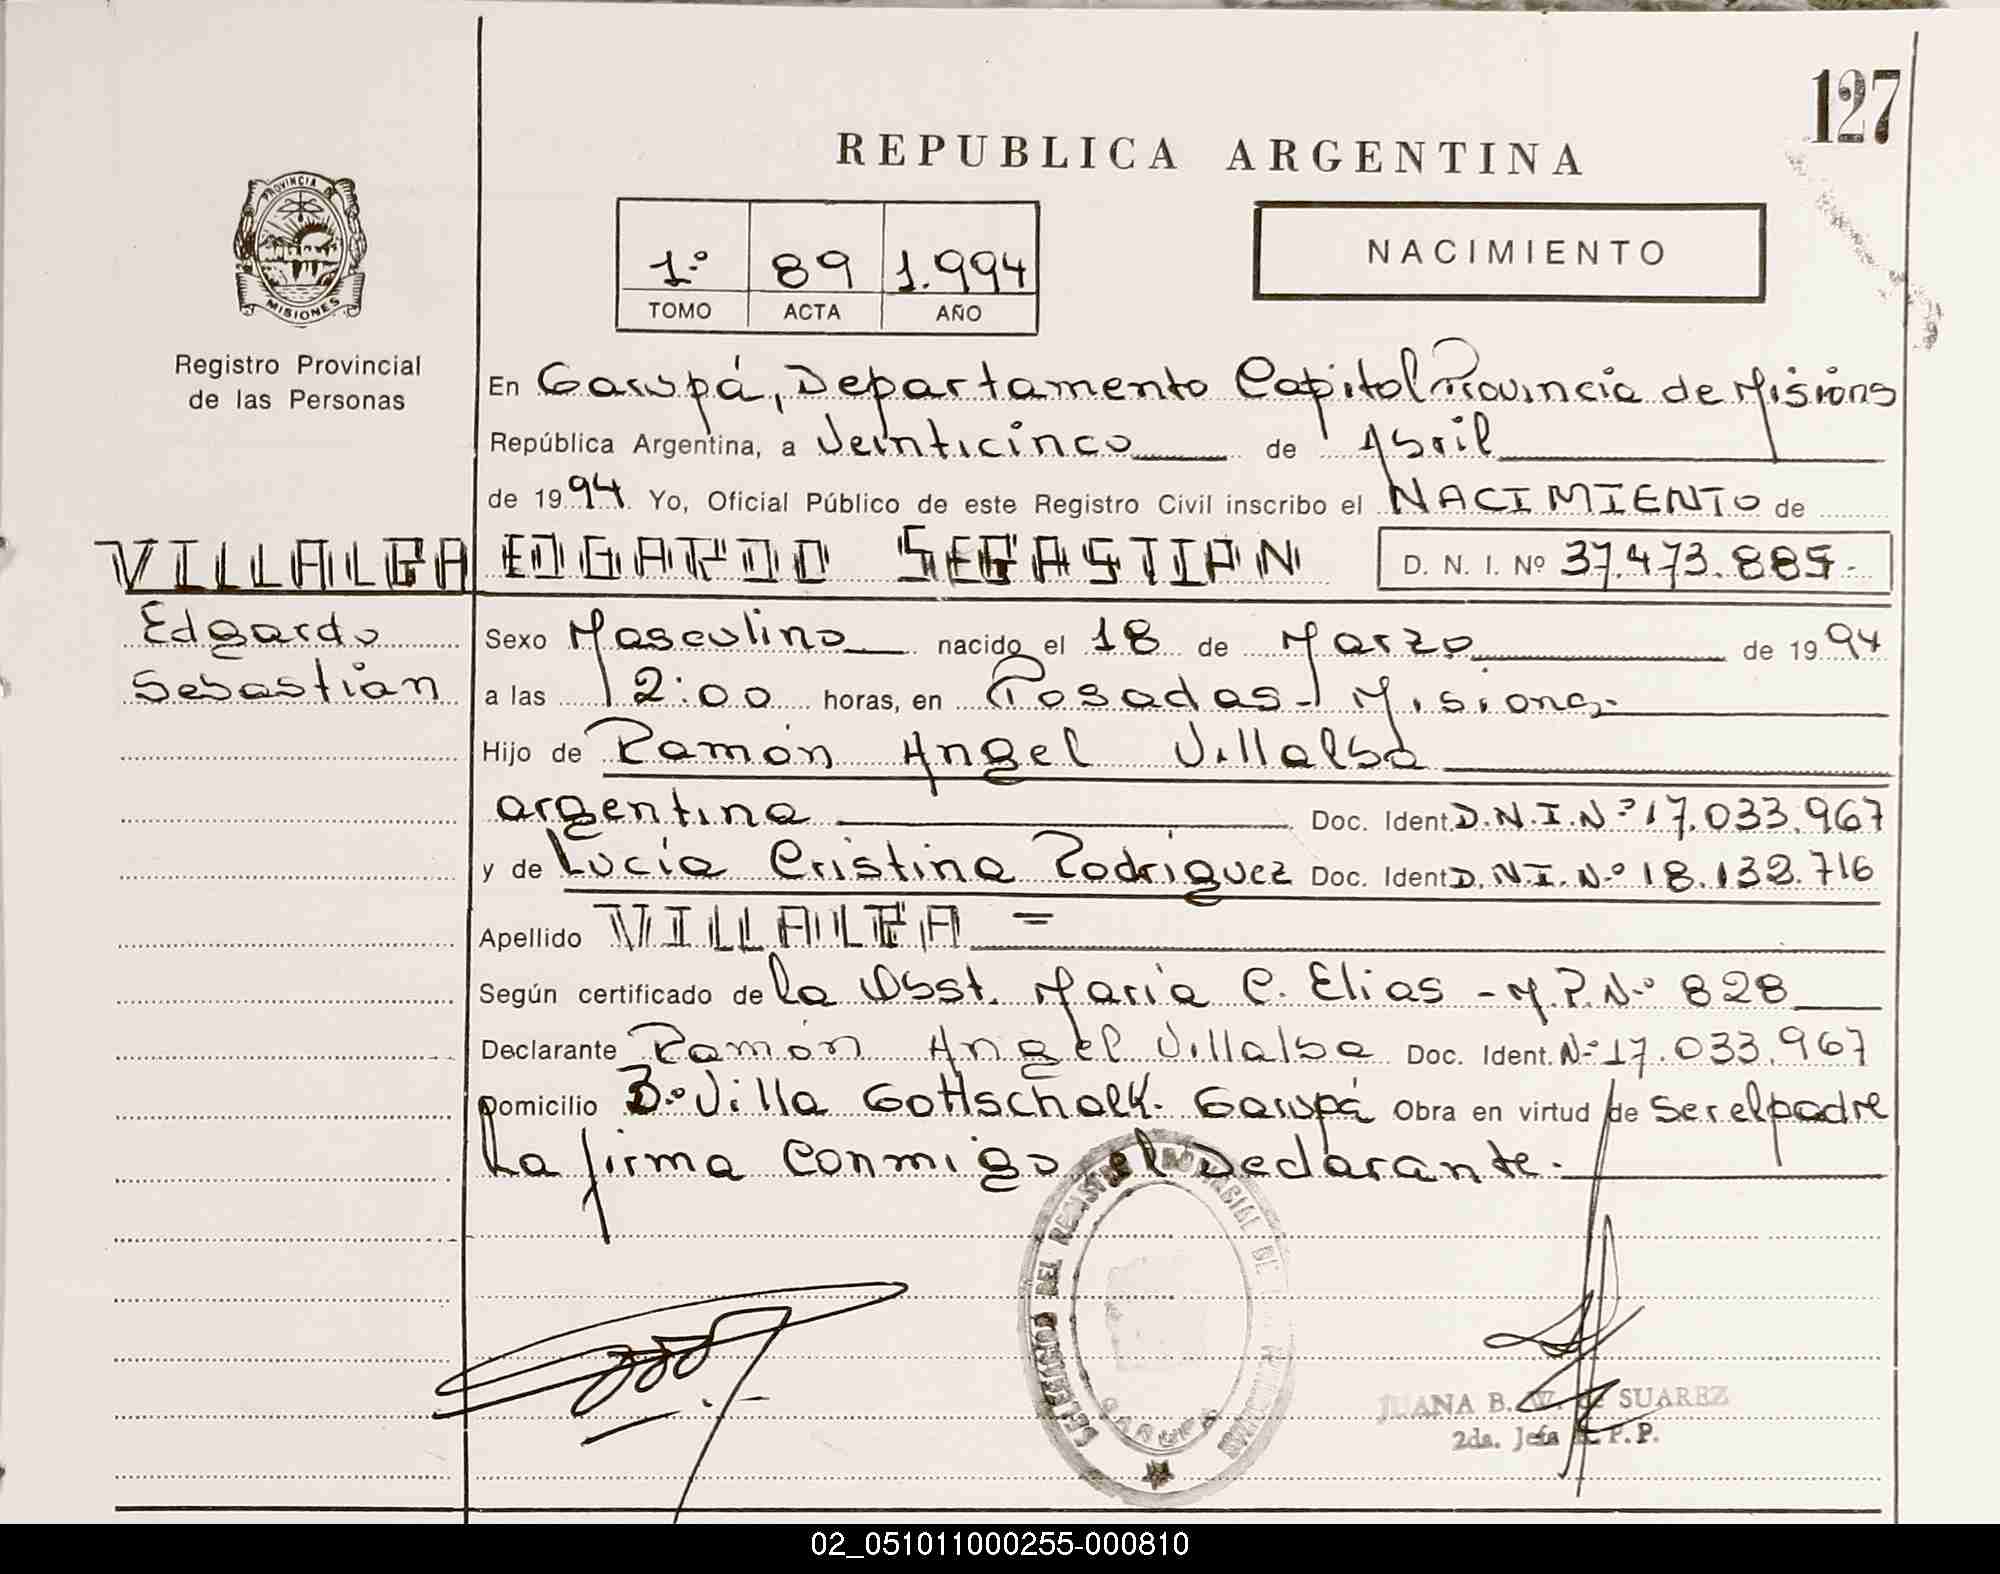 127
REPUBLICA ARGENTINA
PROVINCIA DE
MISIONES
Registro Provincial
de las Personas
1.º 89 1.994
TOMO ACTA AÑO
NACIMIENTO
En Garupá, Departamento Capital Provincia de Misions
República Argentina, a Veinticinco de Abril
de 1994 Yo, Oficial Público de este Registro Civil inscribo el NACIMIENTO de
VILLALBA EDGARDO SEBASTIAN D. N. I. Nº 37.473.885.-
Edgardo
Sebastián
Sexo Masculino nacido el 18 de Marzo de 1994
a las 12:00 horas, en Posadas - Misiones.-
Hijo de Ramón Angel Villalba
argentina Doc. Ident. D.N.I.Nº 17.033.967
y de Lucía Cristina Rodríguez Doc. Ident D.N.I.Nº 18.132.716
Apellido VILLALBA =
Según certificado de la Obst. María C. Elias - M.P.Nº 828
Declarante Ramón Angel Villalba Doc. Ident. Nº 17.033.967
Domicilio Bº Villa Gottschalk. Garupá Obra en virtud de ser el padre
La firma conmigo el Declarante.
DEL REGISTRO PROVINCIAL DE
GARUPA
JUANA B. W. de SUAREZ
2da. Jefa R.P.P.
02_051011000255-000810